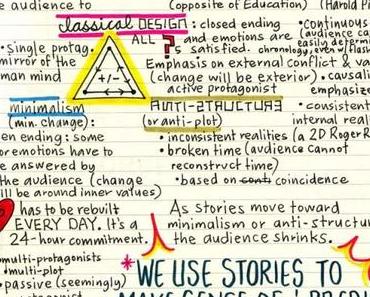 e audience to
(opposite of Education)
(Harold Pi
classical DESIGN: closed ending
•continuous
ALL ?s and emotions are satisfied.
(audience ca
easily determ
chronology, even w/ flash
•single protag.
mirror of the
man mind
+/-
Emphasis on external conflict &
(change will be exterior)
•causali
active protagonist
emphasize
minimalism
(min. change):
ANTI-STRUCTURE
(or anti-plot)
•consistent
internal reali
en ending: some
or emotions have to
e answered by
the audience (change
ill be around inner values)
•inconsistent realities (a 2D Roger R
•broken time (audience cannot
reconstruct time)
•based on cont coincidence
has to be rebuilt
EVERY DAY. It's a
24-hour commitment.
As stories move toward
minimalism or anti-structu
the audience shrinks.
multi-protagonists
multi-plot
•passive (seemingly)
*WE USE STORIES TO